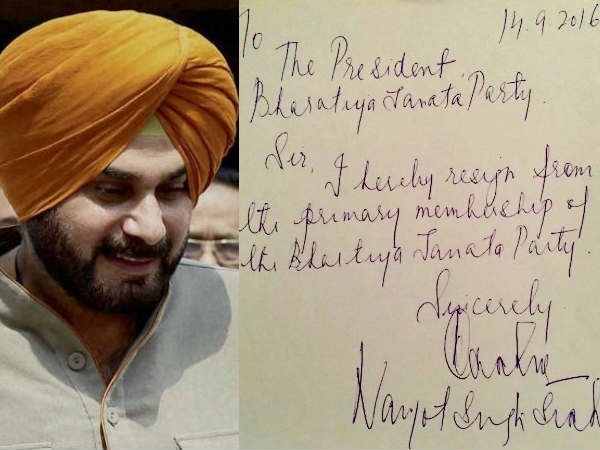 To
14.9.2016
The President,
Bharatiya Janata Party.
Sir, I hereby resign from
the primary membership of
the Bhartiya Janata Party.
Sincerely
Navjot Singh